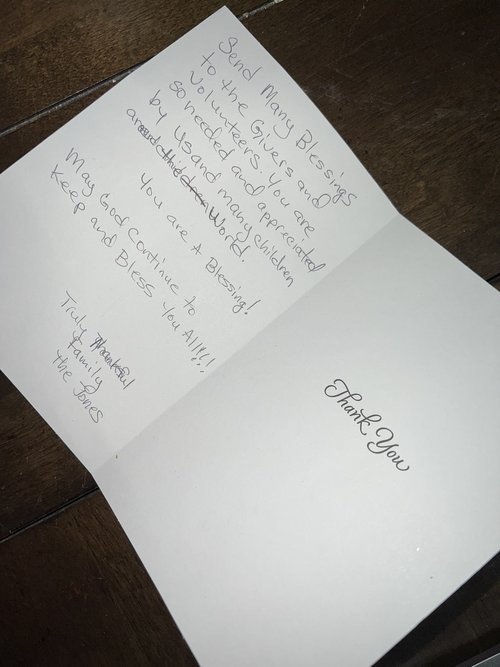 Send Many Blessings
to the Givers and
Volunteers. You are
so needed and appreciated
by Us and many children
around the World.
You are A Blessing!
May God Continue to
Keep and Bless You All!!!
Truly Thankful
Family
The Jones
Thank You